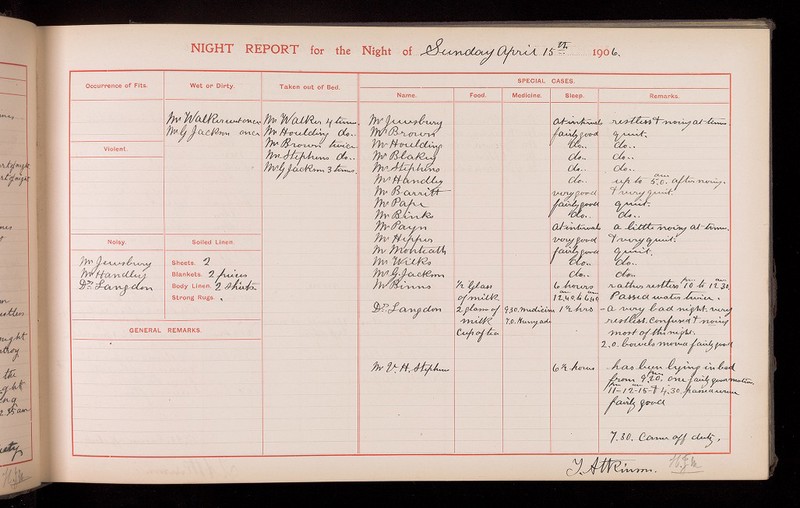 NIGHT REPORT for the Night of Sunday April 15th 1906.
Occurrence of Fits.
Wet or Dirty.
Taken out of Bed.
SPECIAL CASES.
Name.
Food.
Medicine.
Sleep.
Remarks.
Mr Walker wet once
Mr G Jackson once
Mr Walker 4 times
Mr Houlding do..
Mr Brown twice
Mr Stephens do..
Mr G Jackson 3 times.
Violent.
Noisy.
Mr Jewsbury
Mr Handley
Dr Langdon
Soiled Linen.
Sheets. 2
Blankets. 2 pieces
Body Linen. 2 Shirts
Strong Rugs.
GENERAL REMARKS.
Mr Jewsbury At intervals restless & noisy at times
Mr Brown fairly good quiet.
Mr Houlding do.. do..
Mr Blakey do.. do..
Mr Stephens do.. do..
Mr Handley do.. up to 5.0. am after noisy.
Mr Barritt very good & very quiet
Mr Pape fairly good quiet.
Mr Binks do.. do..
Mr Payn At intervals a little noisy at times.
Mr Hippus very good & very quiet.
Mr Monteath fairly good quiet.
Mr Wilks do.. do..
Mr G. Jackson do.. do..
Mr Binns ½ glass 6 hours rather restless 10 to 12.30
of milk 12.40 to 6.40 Passed water twice.
Dr Langdon 2 glass of 9.30. medicine 1½ hrs - a very bad night. very
milk 7.0. Hunyade restless. confused & noisy
Cup of tea most of the night.
2.0. bowels moved fairly good
Mr V. H. Stephens 6½ hours has been lying in bed
from 9.20. one fairly good motion
11-12-15-& 4.30. passed urine
fairly good
7.30. Came off duty.
T. Atkinson.